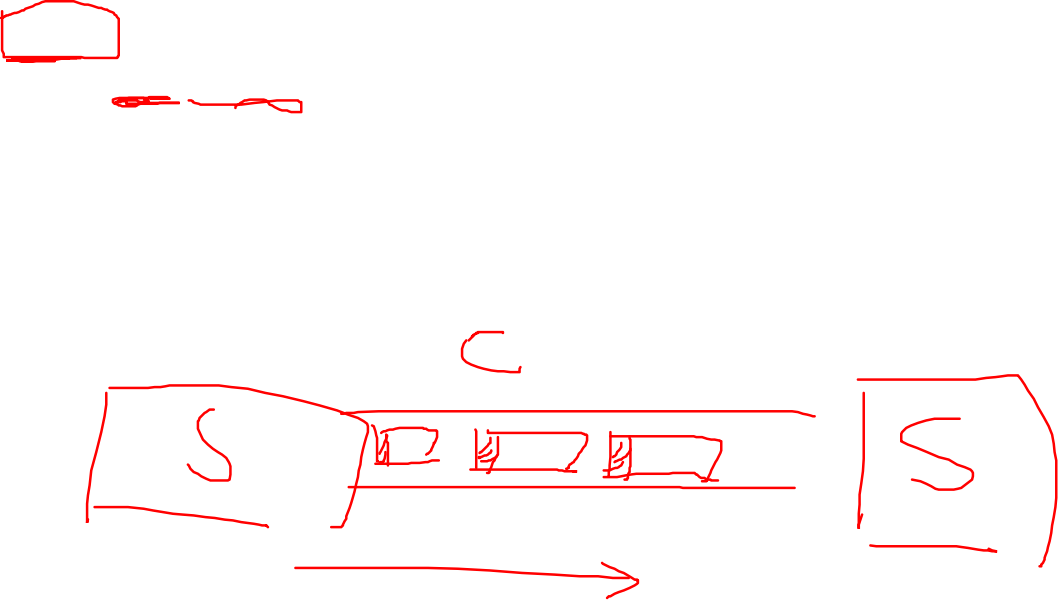 C
S S